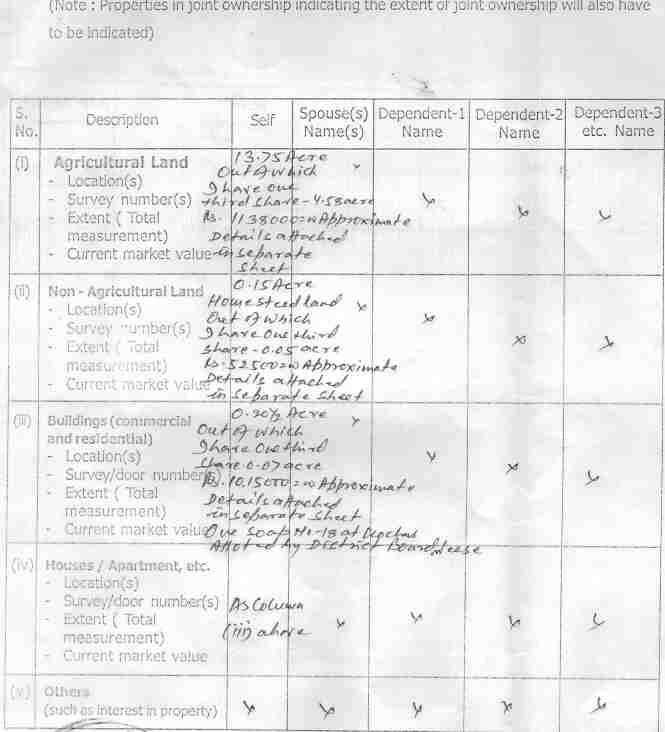 (Note : Properties in joint ownership indicating the extent of joint ownership will also have
to be indicated)
S. No. Description Self Spouse(s) Name(s) Dependent-1 Name Dependent-2 Name Dependent-3 etc. Name
(i) Agricultural Land
- Location(s)
- Survey number(s)
- Extent ( Total
measurement)
- Current market value
13.75 Acre
Out of which
I have one
third share - 4.58 acre
Rs. 1138000=00 Approximate
Details attached
in separate
sheet
x x x x
(ii) Non - Agricultural Land
- Location(s)
- Survey number(s)
- Extent ( Total
measurement)
- Current market value
0.15 Acre
Homesteed land
Out of which
I have One third
share - 0.05 acre
Rs. 52500=00 Approximate
Details attached
in separate sheet
x x x x
(iii) Buildings (commercial
and residential)
- Location(s)
- Survey/door number(s)
- Extent ( Total
measurement)
- Current market value
Acre
Out of which
I have One third
share 0.07 acre
Rs. Approximate
Details attached
in separate sheet
One No-18 at
Alloted by District Board
x x x x
(iv) Houses / Apartment, etc.
- Location(s)
- Survey/door number(s)
- Extent ( Total
measurement)
- Current market value
As Column
(iii) above
x x x x
(v) Others
(such as interest in property)
x x x x x